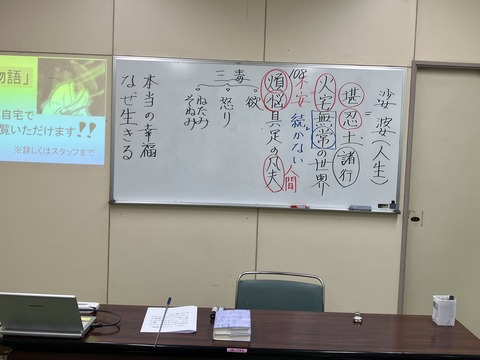 娑婆(人生)
=
堪忍土 諸行
火宅無常の世界
不安 続かない
108
煩悩具足の凡夫
人間
三毒
欲
怒り
ねたみ
そねみ
本当の幸福
なぜ生きる
物語」
自宅で
覧いただけます!!
※詳しくはスタッフまで